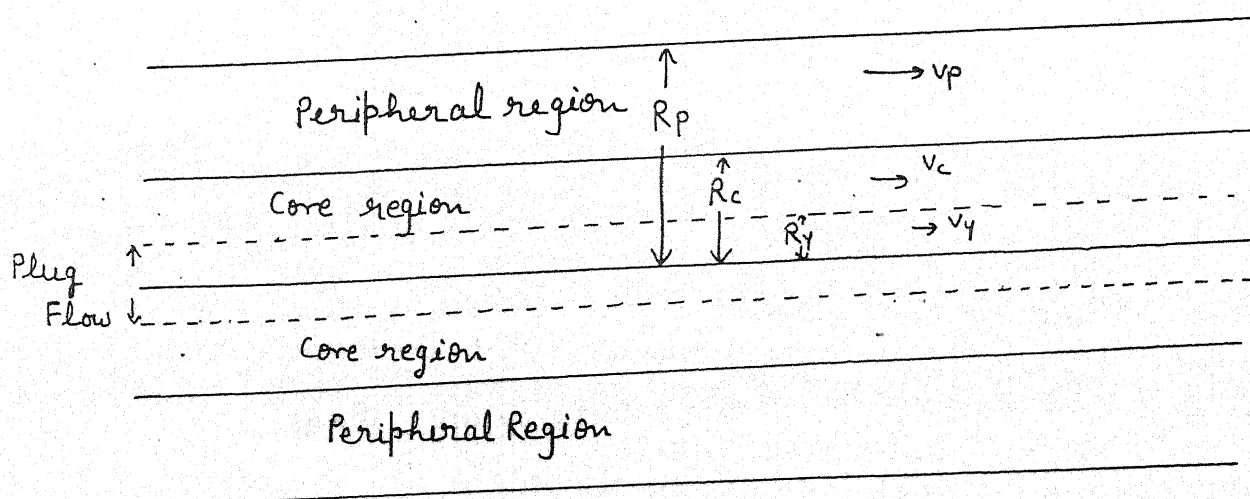 Peripheral region
Rp
→ vp
Core region
Rc
→ vc
Ry
→ vy
Plug
Flow
Core region
Peripheral Region